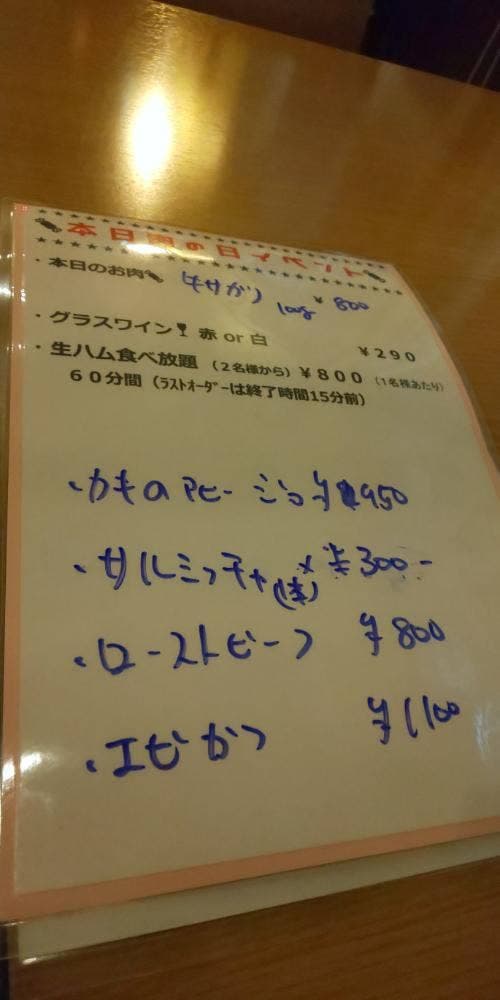 本日肉の日イベント
・本日のお肉 牛サガリ 100g ¥800
・グラスワイン 赤 or 白 ¥290
・生ハム食べ放題 (2名様から) ¥800 (1名様あたり)
60分間 (ラストオーダーは終了時間15分前)
・カキのアヒージョ ¥950
・サルミッチャ (1本) ¥300-
・ローストビーフ ¥800
・エビかつ ¥1100